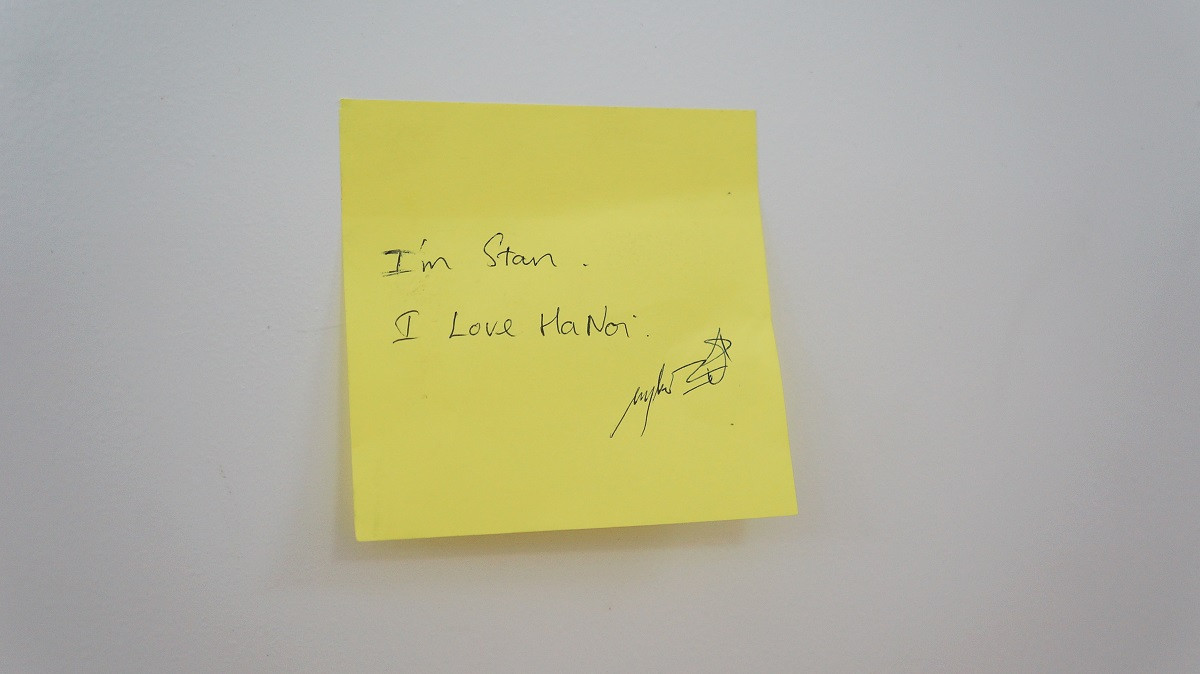 I'm Stan.
I Love HaNoi.